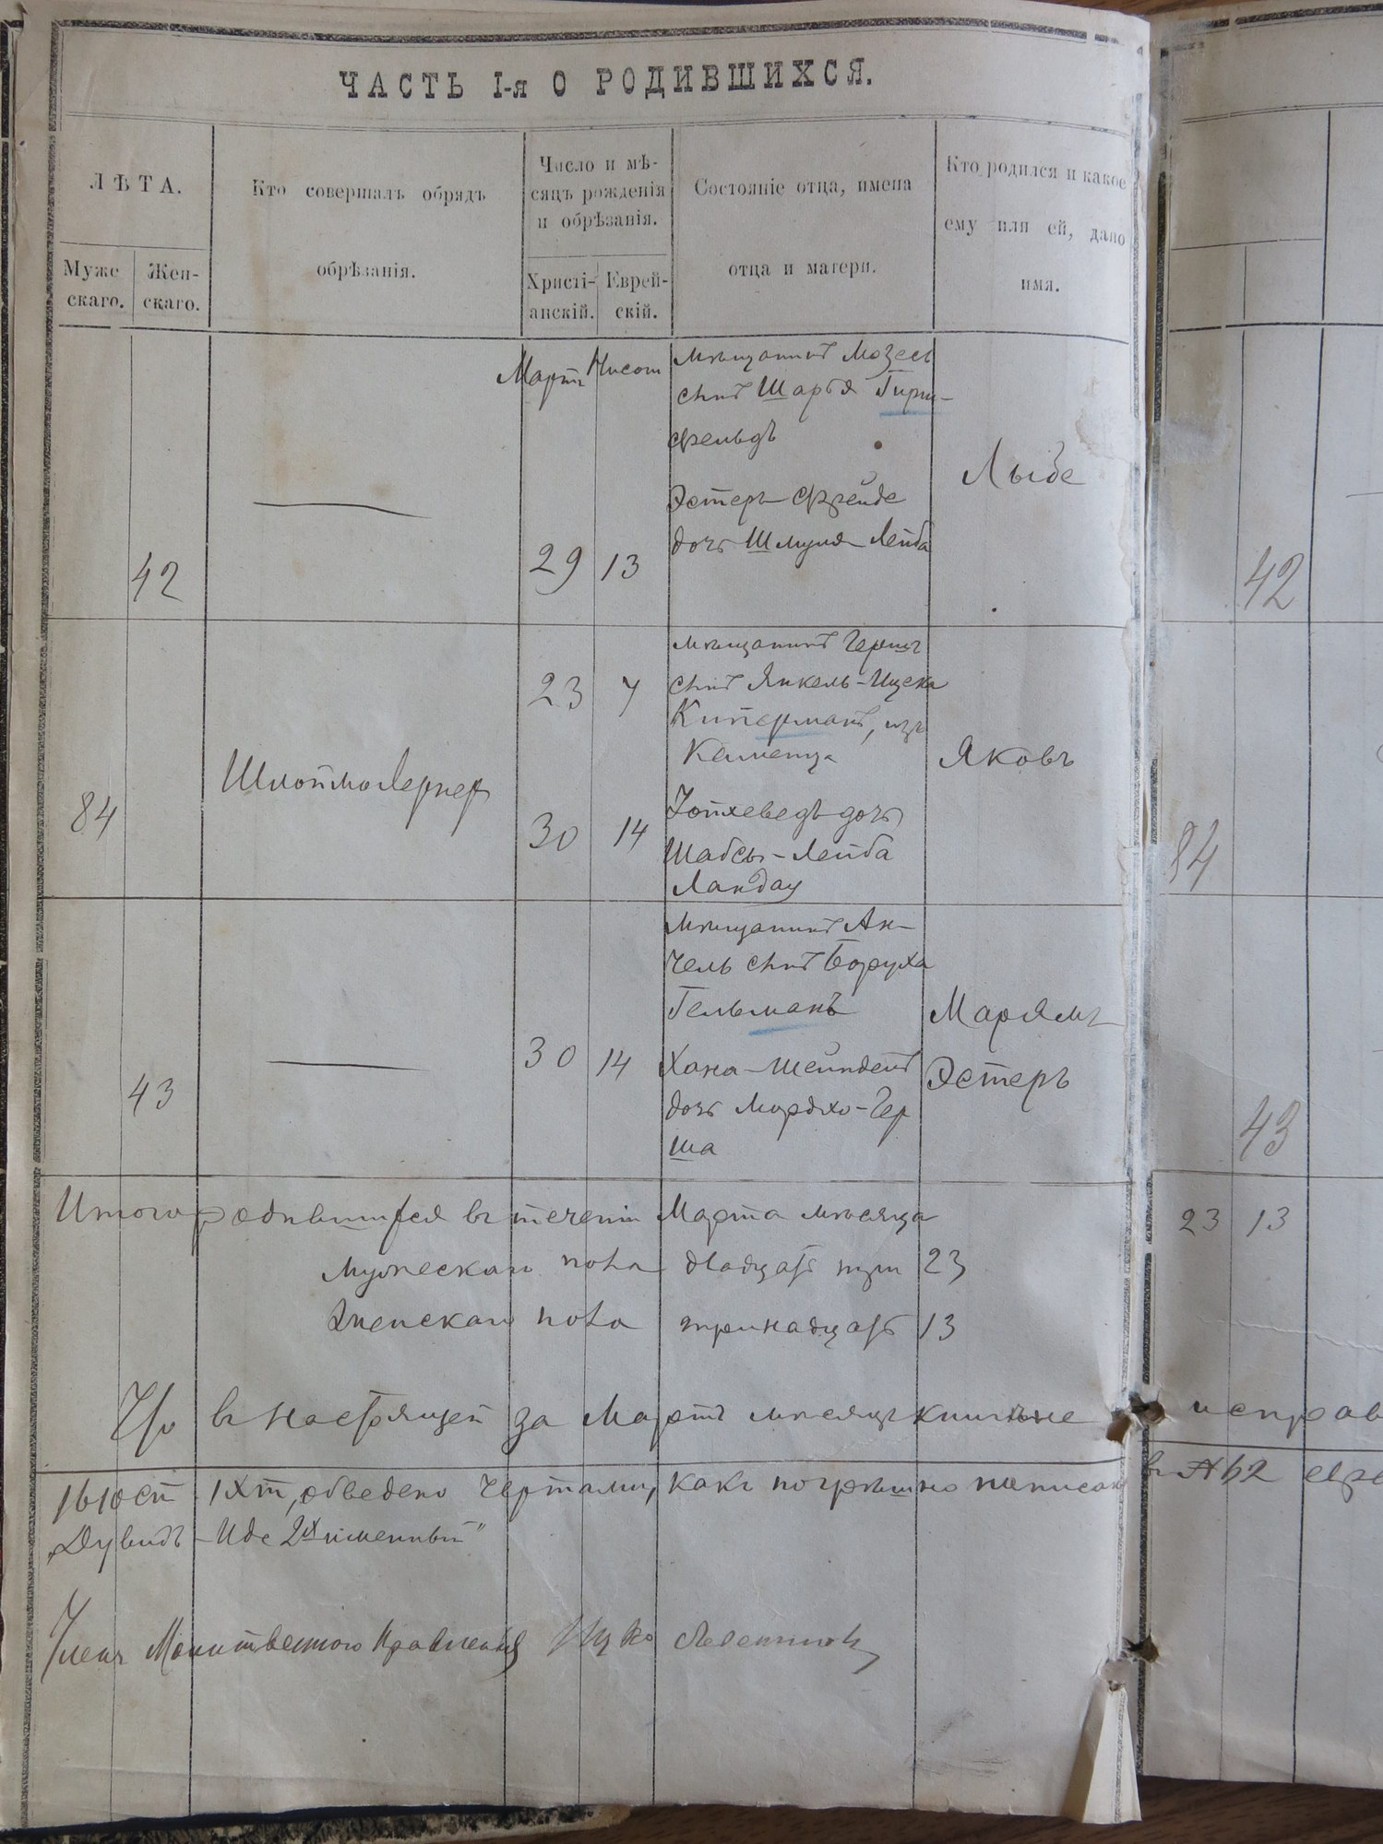 ЧАСТЬ I-я О РОДИВШИХСЯ.
ЛѢТА.
Муже
скаго.
Жен-
скаго.
Кто совершалъ обрядъ
обрѣзанія.
Число и мѣ-
сяцъ рожденія
и обрѣзанія.
Христі-
анскій.
Еврей-
скій.
Состояніе отца, имена
отца и матери.
Кто родился и какое
ему или ей, дано
имя.
42
Мартъ
29
13
мѣщанинъ Мозесъ
сынъ Шарья Гирш-
фельдъ
Эстеръ Фрейде
дочь Шмуля Лейба
Лыбе
42
84
23
7
30
14
мѣщанинъ Гершъ
сынъ Янкель-Ицека
Киперманъ, изъ
Каменца
дочь
Шабсы-Лейба
Ландау
Яковъ
84
43
30
14
мѣщанинъ Ан-
чель сынъ Боруха
Гельманъ
Хана-Шейндель
дочь Мордко-Гер
ша
Марямъ
Эстеръ
43
Итого родившихся въ теченіи Марта мѣсяца
23
13
Мужескаго пола двадцать три 23
Женскаго пола тринадцать 13
Что въ настоящей за Мартъ мѣсяцъ книгѣ не
исправ
обведено чертами, какъ погрѣшно написан
въ № 62
Членъ Молитвеннаго Правленія Ицко